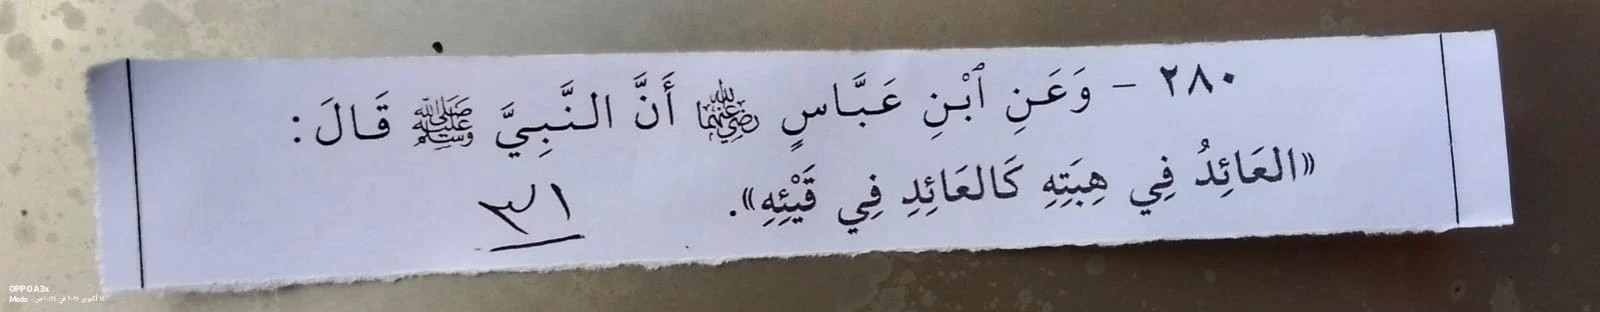 ٢٨٠ - وَعَنِ ٱبْنِ عَبَّاسٍ رَضِيَ اللهُ عَنْهُمَا أَنَّ النَّبِيَّ ﷺ قَالَ:
«العَائِدُ فِي هِبَتِهِ كَالعَائِدِ فِي قَيْئِهِ».
٣١
OPPO A3x
Medo